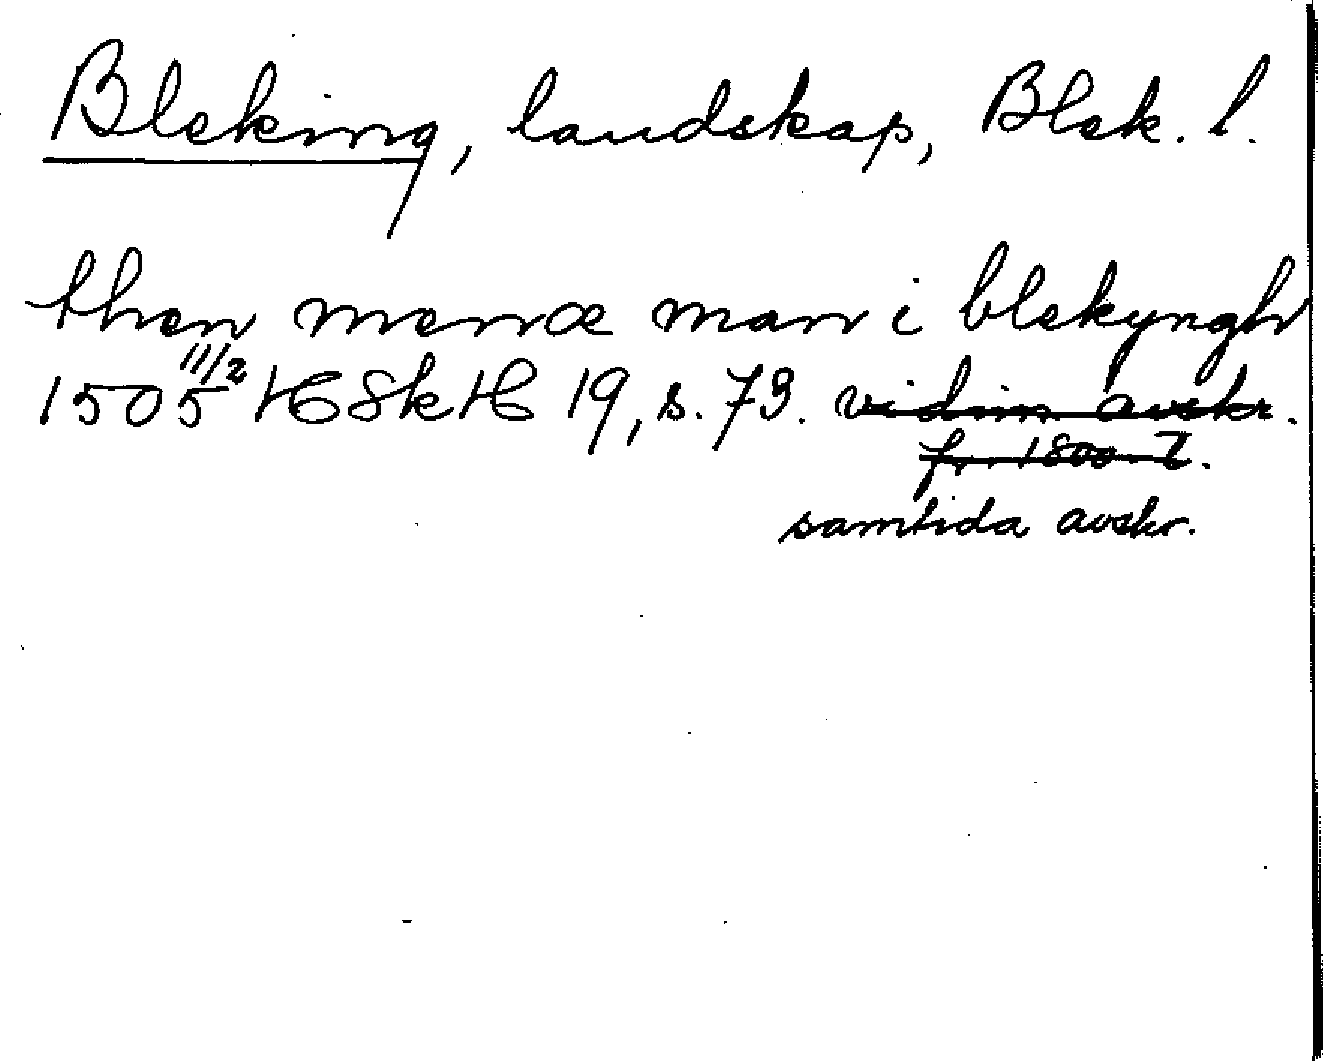 Bleking, landskap, Blek. l.
then menæ man i blekyngh
1505 11/2 HSkH 19, s. 73. vidim. avskr.
fr. 1800-t.
samtida avskr.